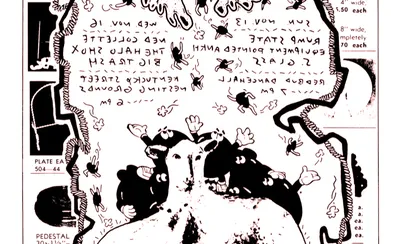 4" wide,
.50 each
8" wide,
mpletely
70 each
SUN NOV 13
RUMP STATE
EQUIPMENT POINTED ANKH
S. GLASS
REDBUD DANCEHALL
7 PM
WED NOV 16
NED COLLETTE
THE HALL SHOX
BIG TRASH
KENTUCKY STREET
NESTING GROUNDS
6 PM
PLATE EA
504—44
PEDESTAL
ea.
ea.
ea.